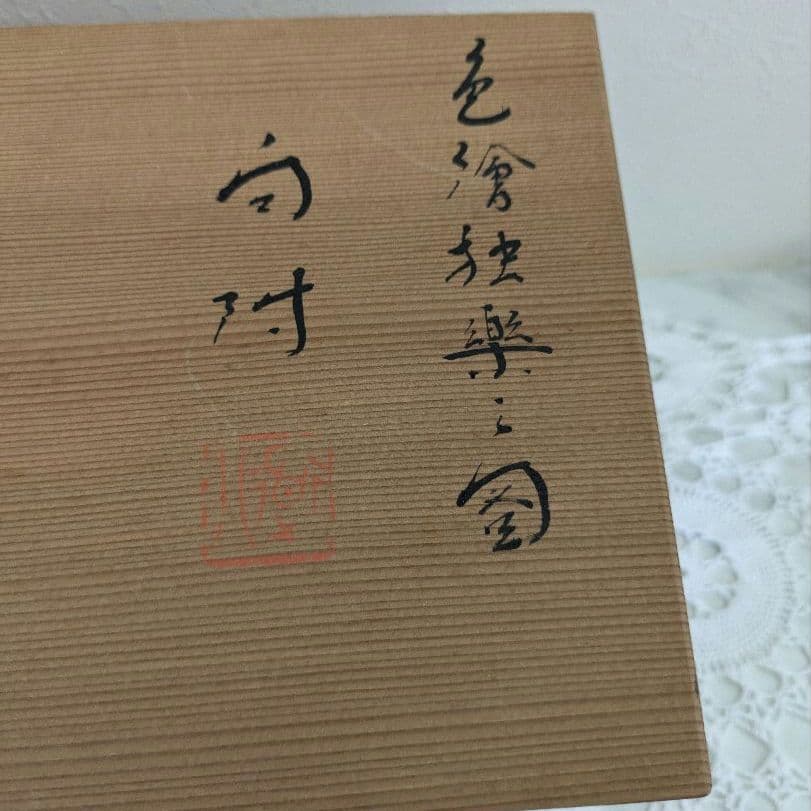 色繪独樂之圖
向附